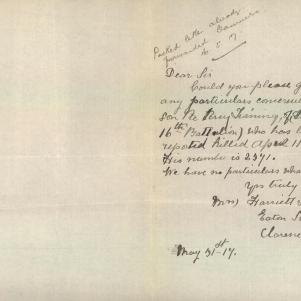 Packet letter already
forwarded
to S M
Dear Sir
Could you please g
any particulars concern
son Pte Percy
16th Battalion) who has b
reported killed April 11
His number is 2371.
We have no particulars wha
Yrs truly
Mrs) Harriett
Eaton S
Clarence
May 31st-17.